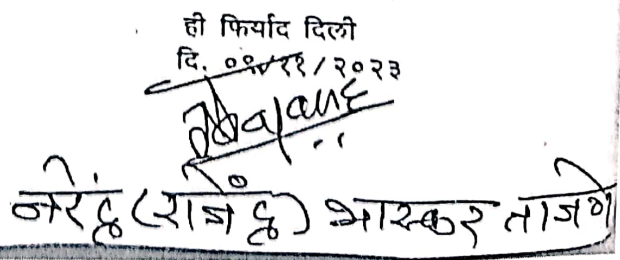 ही फिर्याद दिली
दि. ०९/११/२०२३
नरेंद्र (राजेंद्र) भास्कर ताजणे